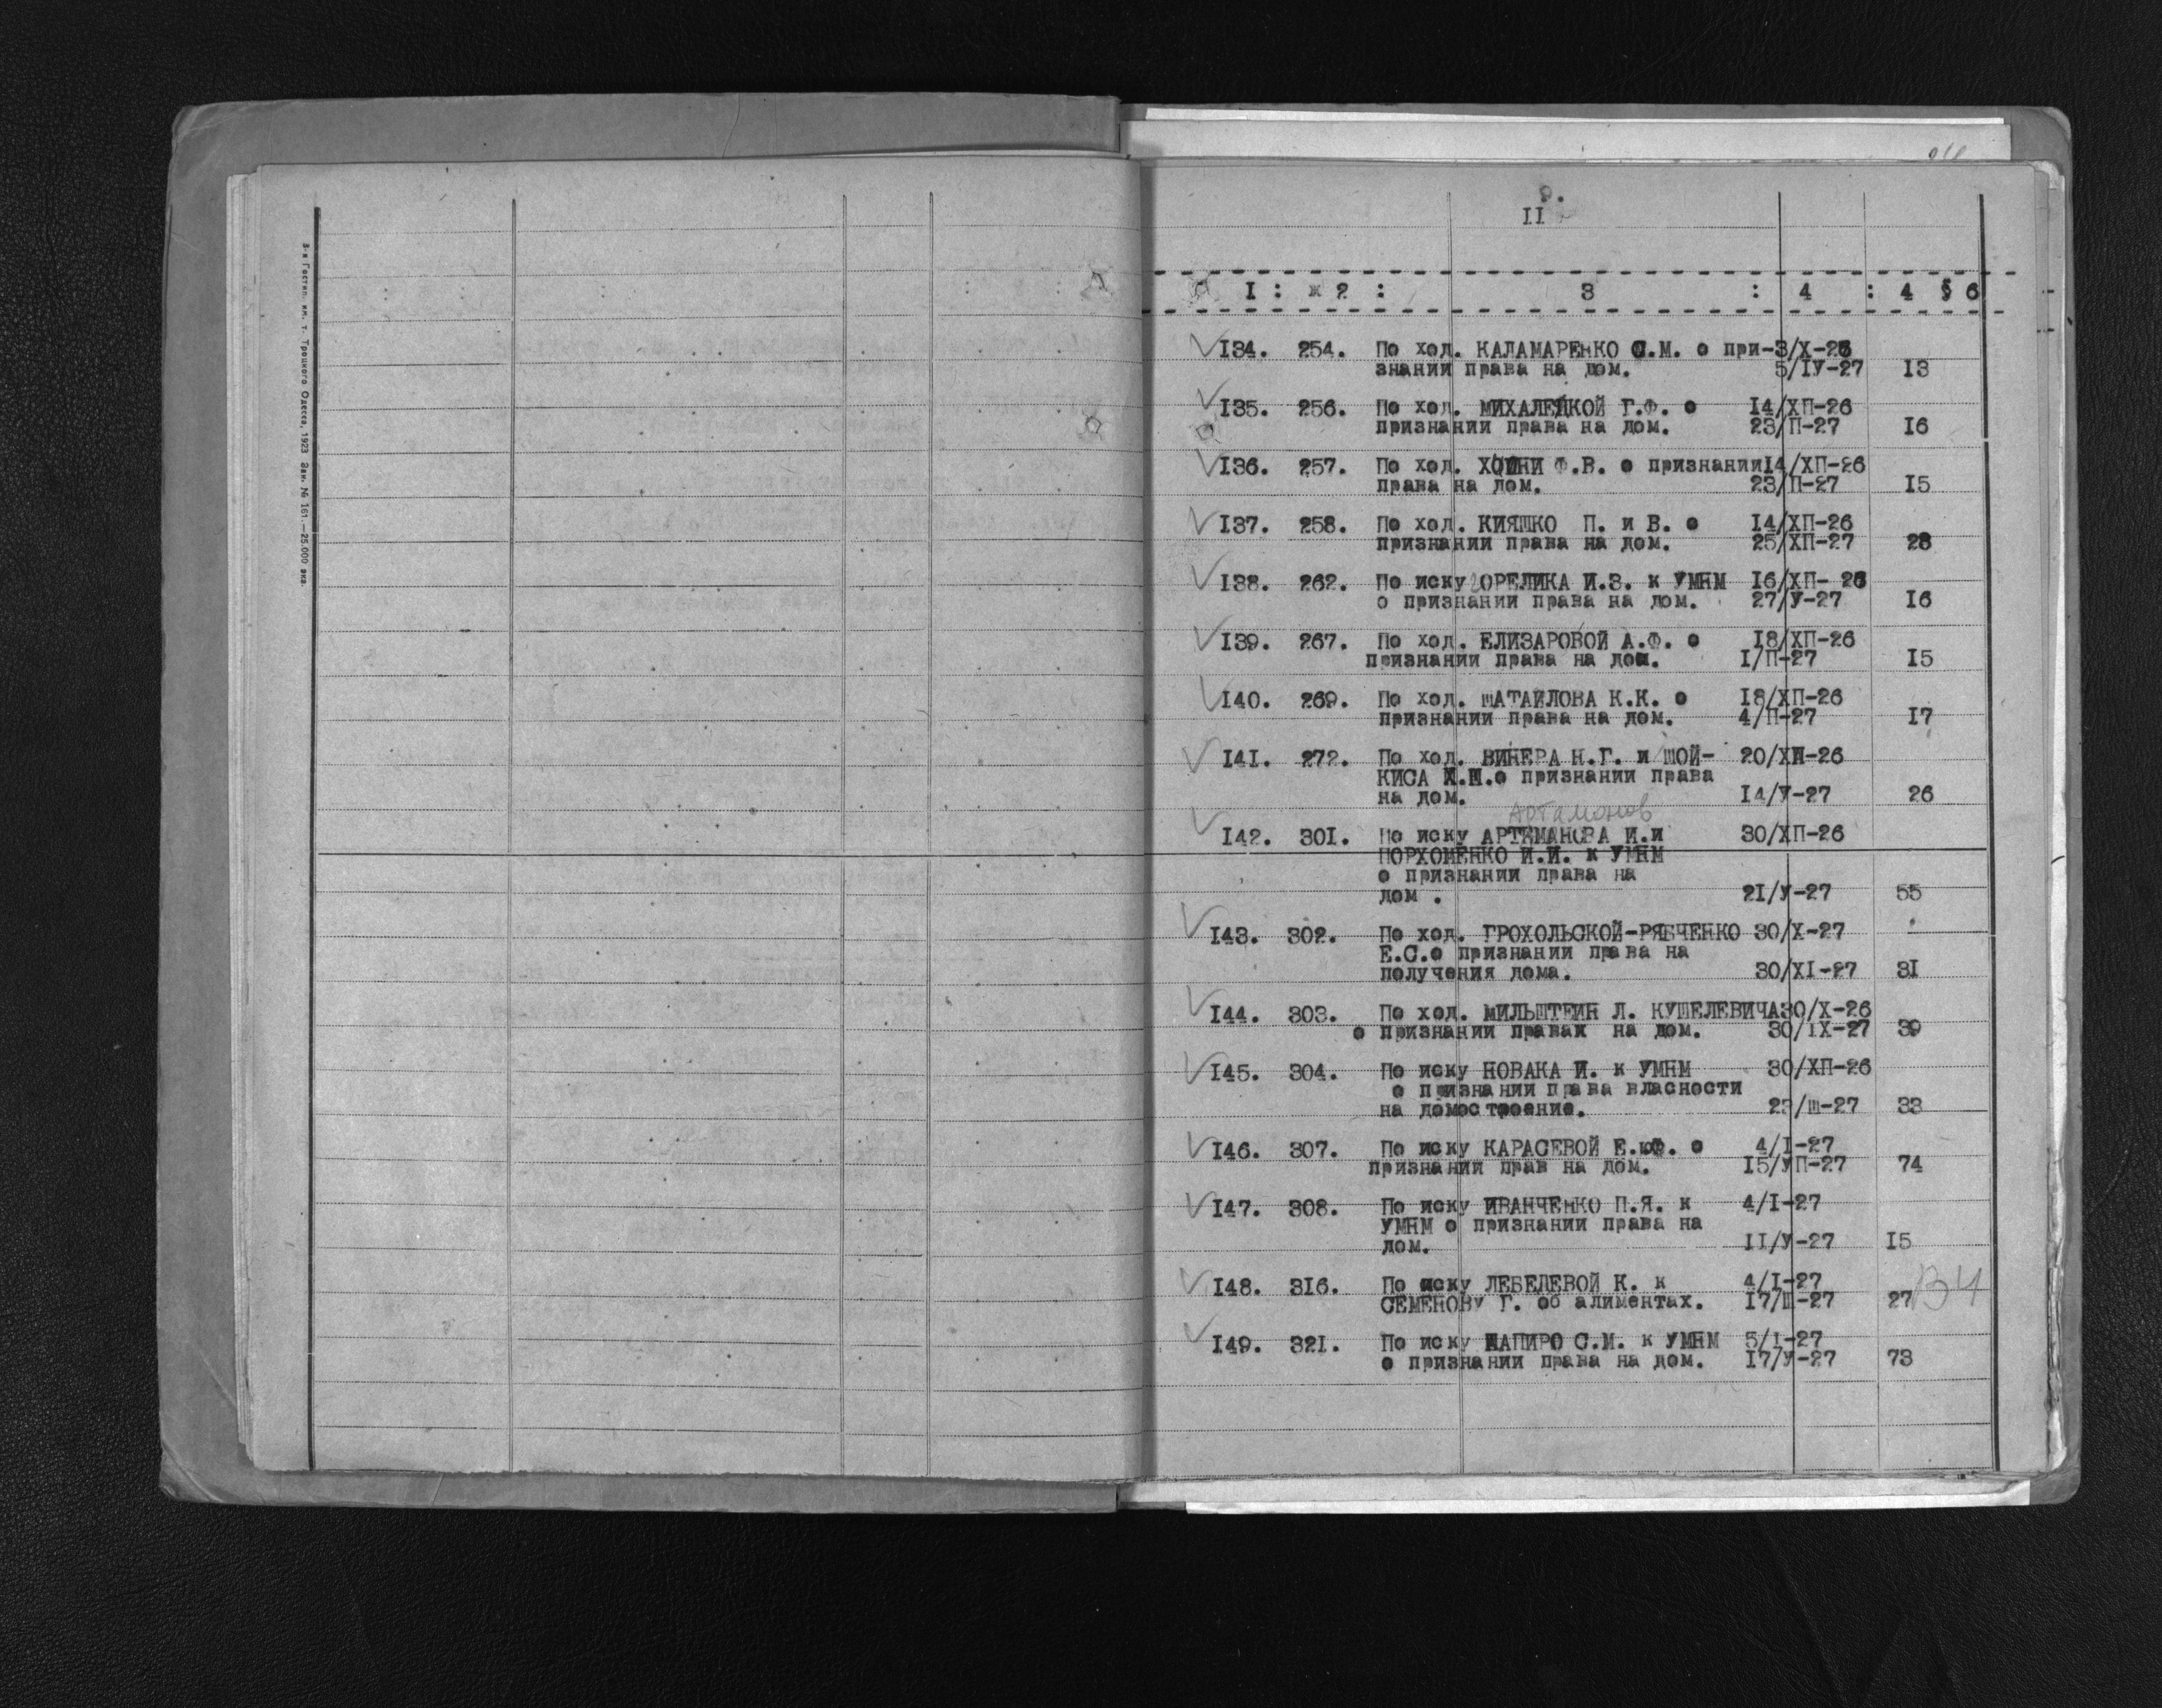 3-я Гостип. им. т. Троцкого Одесса, 1923 Зак. № 161.—25.000 экз.
9.
II
I : ж 2 : 3 : 4 : 4 § 6
I34. 254. По ход. КАЛАМАРЕНКО С.М. о при-3/X-26
знании права на дом. 5/IУ-27 I3
I35. 256. По ход. МИХАЛЕЦКОЙ Г.Ф. о I4/ХП-26
признании права на дом. 23/П-27 I6
I36. 257. По ход. Ф.В. о признании I4/ХП-26
права на дом. 23/П-27 I5
I37. 258. По ход. КИЯШКО П. и В. о I4/ХП-26
признании права на дом. 25/ХП-27 28
I38. 262. По иску ОРЕЛИКА И.З. к УМНМ I6/ХП- 26
о признании права на дом. 27/У-27 I6
I39. 267. По ход. ЕЛИЗАРОВОЙ А.Ф. о I8/ХП-26
признании права на дом. I/П-27 I5
I40. 269. По ход. ШАТАЙЛОВА К.К. о I8/ХП-26
признании права на дом. 4/П-27 I7
I4I. 272. По ход. ВИНЕРА Н.Г. и ШОЙ- 20/ХП-26
КИСА о признании права
на дом. I4/У-27 26
Артамонов
I42. 30I. По иску АРТЕМАНОВА И.и 30/ХП-26
ПОРХОМЕНКО И.И. к УМНМ
о признании права на
дом . 2I/У-27 55
I43. 302. По ход. ГРОХОЛЬСКОЙ-РЯБЧЕНКО 30/X-27
Е.С.о признании права на
получения дома. 30/XI-27 3I
I44. 303. По ход. МИЛЬШТЕИН Л. КУШЕЛЕВИЧА 30/X-26
о признании правах на дом. 30/IX-27 39
I45. 304. По иску НОВАКА И. к УМНМ 30/ХП-26
о признании права власности
на домостроение. 23/Ш-27 33
I46. 307. По иску КАРАСЕВОЙ о 4/I-27
признании прав на дом. I5/УП-27 74
I47. 308. По иску ИВАНЧЕНКО П.Я. к 4/I-27
УМНМ о признании права на
дом. II/У-27 I5
I48. 316. По иску ЛЕБЕДЕВОЙ К. к 4/I-27
СЕМЕНОВУ Г. об алиментах. I7/Ш-27 27
I49. 32I. По иску ШАПИРО С.М. к УМНМ 5/I-27
о признании права на дом. I7/У-27 73